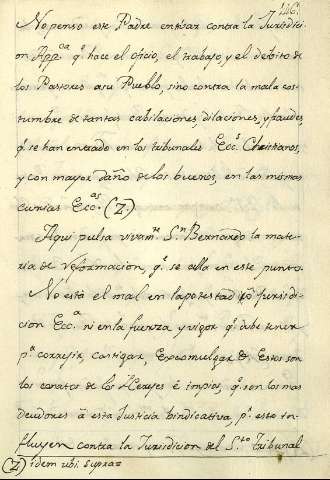 446.
No pensó este Padre entibar contra la Jurisdici-
on App.ca q.e hace el oficio, el trabajo, y el debito de
los Pastores a su Pueblo, sino contra la mala cos-
tumbre de tantas cabilaciones, dilaciones, y fraudes,
q.e se han entrado en los tribunales Ecc.s Christianos,
y con mayor daño de los buenos, en las mismas
curias Ecc.as (Z.)
Aqui pulsa vivam.te S.n Bernardo la mate-
ria de reformacion, q.e se alla en este punto.
No está el mal en la potestad jurisdi-
cion Ecc.a ni en la fuerza y vigor q.e debe tener
p.a corregir, castigar, Excomulgar &. Estos son
los conatos de los Hereges é impios, q.e son los mas
deudores á esta Justicia bindicativa, p.r esto in-
fluyen contra la Jurisdicion del S.to Tribunal
(Z) idem ubi supra=